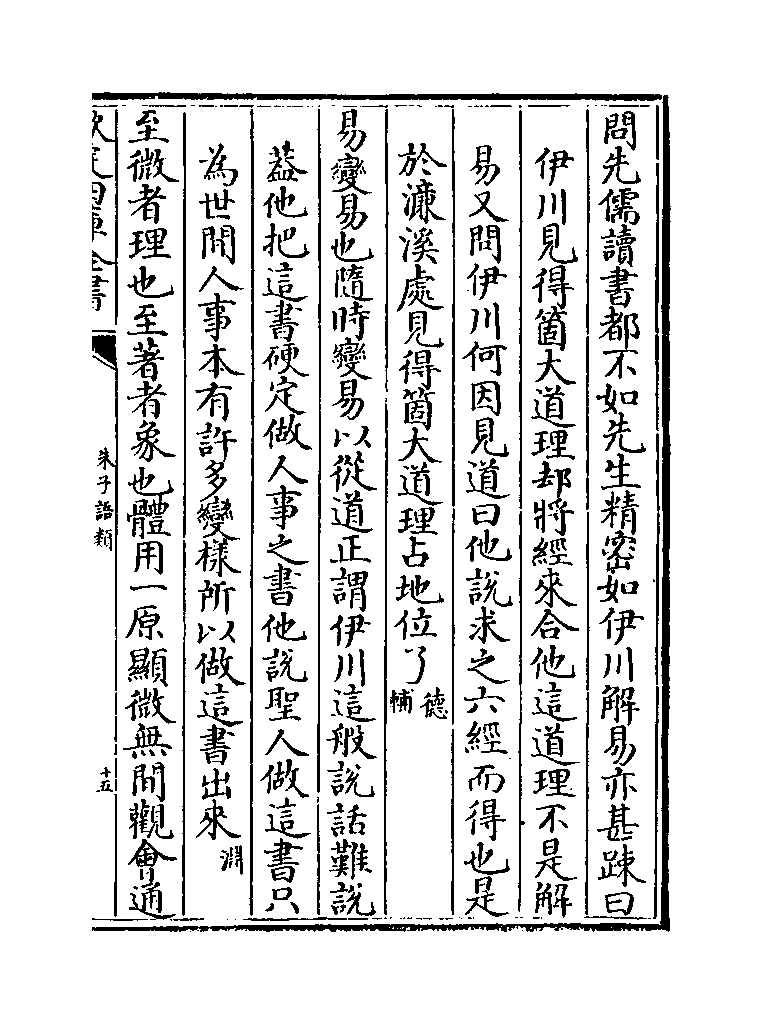 問先儒讀書都不如先生精密如伊川解易亦甚踈曰
伊川見得箇大道理却將經來合他這道理不是解
易又問伊川何因見道曰他說求之六經而得也是
於濂溪處見得箇大道理占地位了德輔
易變易也隨時變易以從道正謂伊川這般說話難說
葢他把這書硬定做人事之書他說聖人做這書只
為世間人事本有許多變樣所以做這書出來淵
至微者理也至著者象也體用一原顯微無間觀會通
欽定四庫全書
朱子語類
十五